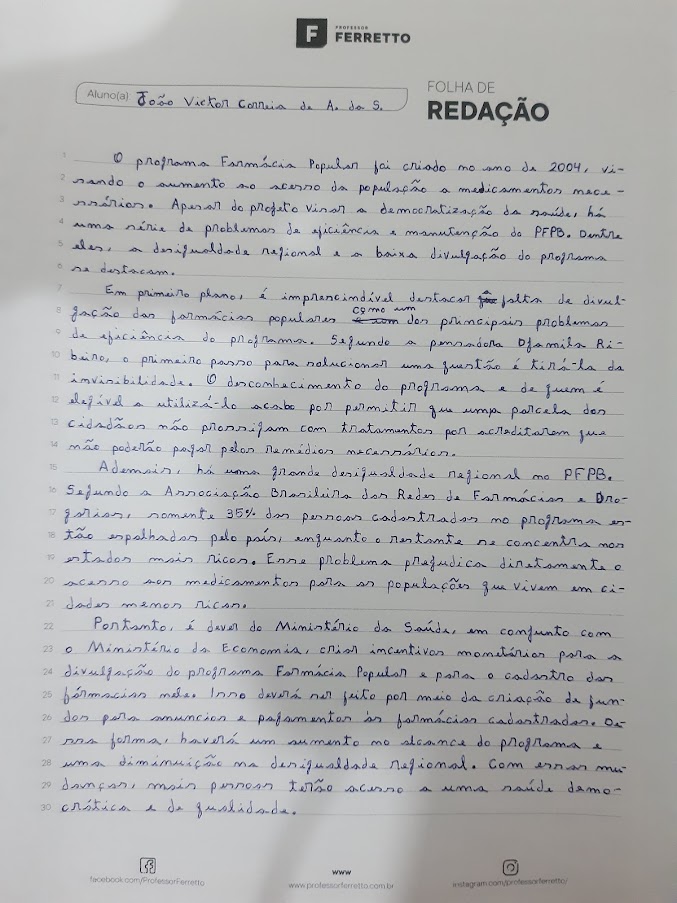 F PROFESSOR FERRETTO
Aluno(a) João Victor Correia de A. da S.
FOLHA DE
REDAÇÃO
1 O programa Farmácia Popular foi criado no ano de 2004, vi-
2 sando o aumento ao acesso da população a medicamentos nece-
3 ssários. Apesar do projeto visar a democratização da saúde, há
4 uma série de problemas de eficiência e manutenção do PFPB. Dentre
5 eles, a desigualdade regional e a baixa divulgação do programa
6 se destacam.
7 Em primeiro plano, é imprencindível destacar falta de divul-
8 gação das farmácias populares como um dos principais problemas
9 de eficiência do programa. Segundo a pensadora Djamila Ri-
10 beiro, o primeiro passo para solucionar uma questão é tirá-la da
11 invisibilidade. O desconhecimento do programa e de quem é
12 elegível a utilizá-lo acaba por permitir que uma parcela dos
13 cidadãos não prossigam com tratamentos por acreditarem que
14 não poderão pagar pelos remédios necessários.
15 Ademais, há uma grande desigualdade regional no PFPB.
16 Segundo a Associação Brasileira das Redes de Farmácias e Dro-
17 garias, somente 35% das pessoas cadastradas no programa es-
18 tão espalhadas pelo país, enquanto o restante se concentra nos
19 estados mais ricos. Esse problema prejudica diretamente o
20 acesso aos medicamentos para as populações que vivem em ci-
21 dades menos ricas.
22 Portanto, é dever do Ministério da Saúde, em conjunto com
23 o Ministério da Economia, criar incentivos monetários para a
24 divulgação do programa Farmácia Popular e para o cadastro das
25 fármacias nele. Isso deverá ser feito por meio da criação de fun-
26 dos para anuncios e pagamentos às farmácias cadastradas. De-
27 ssa forma, haverá um aumento no alcance do programa e
28 uma diminuição na desigualdade regional. Com essas mu-
29 danças, mais pessoas terão acesso a uma saúde demo-
30 crática e de qualidade.
facebook.com/ProfessorFerretto
www
www.professorferretto.com.br
instagram.com/professorferretto/